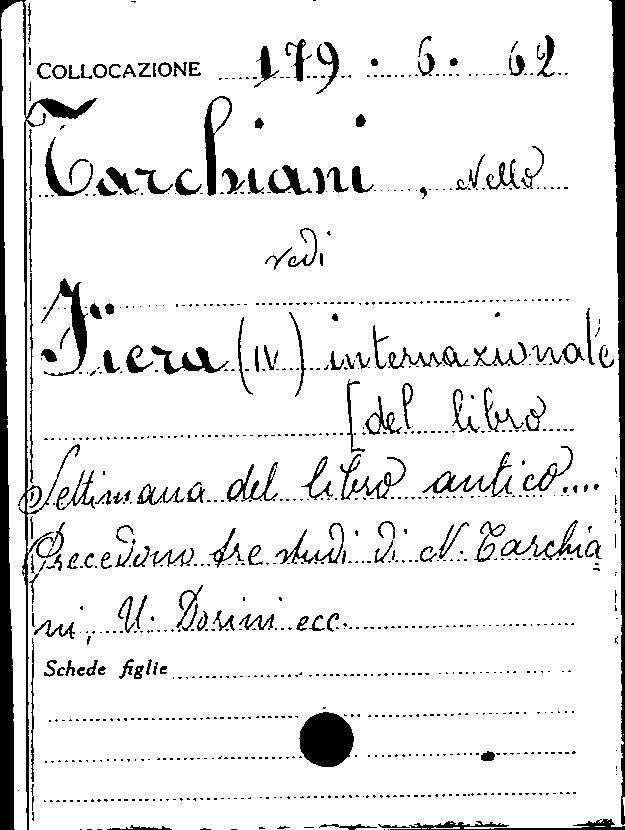 COLLOCAZIONE 179 · 6 · 62
Tarchiani, Nello
vedi
Fiera (IV) internazionale
[del libro
Settimana del libro antico....
Precedono tre studi di N. Tarchia=
ni, U. Dorini ecc.
Schede figlie